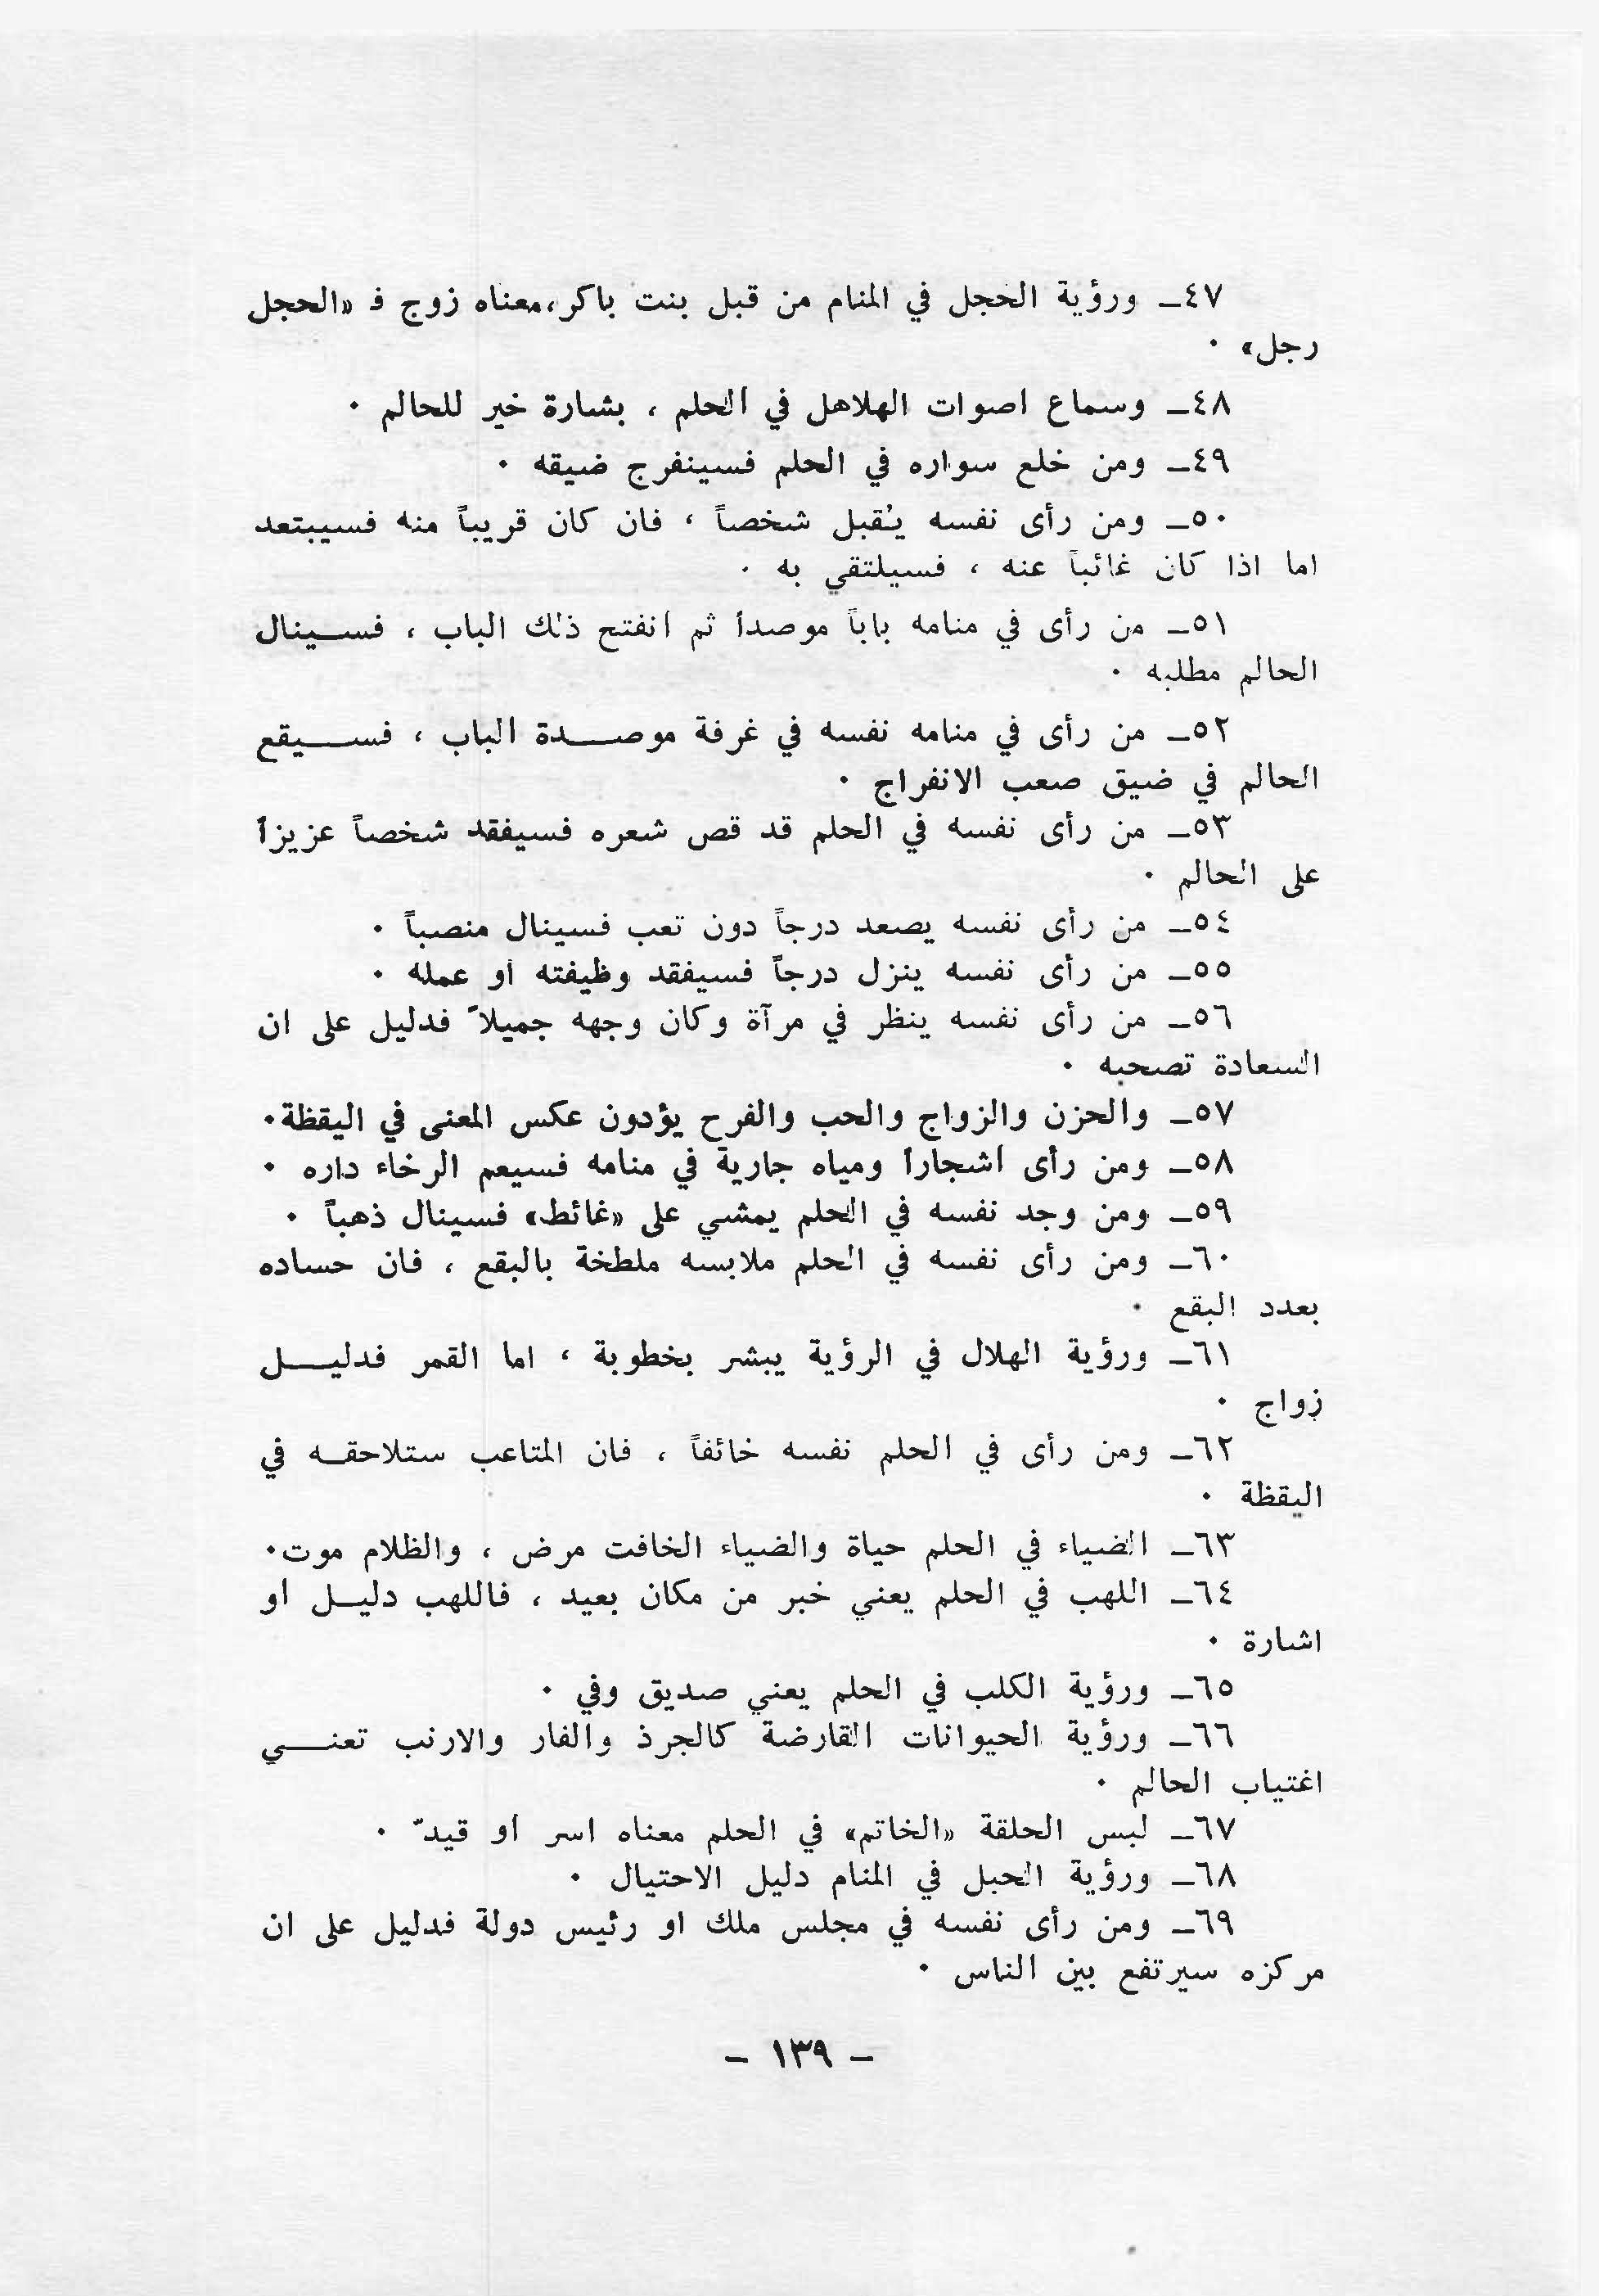 ٤٧ـ ورؤية الحجل في المنام من قبل بنت باكر، معناه زوج فـ «الحجل
رجل» ٠
٤٨ـ وسماع اصوات الهلاهل في الحلم ، بشارة خير للحالم ٠
٤٩ـ ومن خلع سواره في الحلم فسينفرج ضيقه ٠
٥٠ـ ومن رأى نفسه يُقبل شخصاً ، فان كان قريباً منه فسيبتعد
اما اذا كان غائباً عنه ، فسيلتقي به ٠
٥١ـ من رأى في منامه باباً موصداً ثم انفتح ذلك الباب ، فســينال
الحالم مطلبه ٠
٥٢ـ من رأى في منامه نفسه في غرفة موصــدة الباب ، فســـيقع
الحالم في ضيق صعب الانفراج ٠
٥٣ـ من رأى نفسه في الحلم قد قص شعره فسيفقد شخصاً عزيزاً
على الحالم ٠
٥٤ـ من رأى نفسه يصعد درجاً دون تعب فسينال منصباً ٠
٥٥ـ من رأى نفسه ينزل درجاً فسيفقد وظيفته أو عمله ٠
٥٦ـ من رأى نفسه ينظر في مرآة وكان وجهه جميلاً فدليل على ان
السعادة تصحبه ٠
٥٧ـ والحزن والزواج والحب والفرح يؤدون عكس المعنى في اليقظة٠
٥٨ـ ومن رأى أشجاراً ومياه جارية في منامه فسيعم الرخاء داره ٠
٥٩ـ ومن وجد نفسه في الحلم يمشي على «غائط» فسينال ذهباً ٠
٦٠ـ ومن رأى نفسه في الحلم ملابسه ملطخة بالبقع ، فان حساده
بعدد البقع ٠
٦١ـ ورؤية الهلال في الرؤية يبشر بخطوبة ، اما القمر فدليـــل
زواج ٠
٦٢ـ ومن رأى في الحلم نفسه خائفاً ، فان المتاعب ستلاحقــه في
اليقظة ٠
٦٣ـ الضياء في الحلم حياة والضياء الخافت مرض ، والظلام موت٠
٦٤ـ اللهب في الحلم يعني خبر من مكان بعيد ، فاللهب دليــل أو
اشارة ٠
٦٥ـ ورؤية الكلب في الحلم يعني صديق وفي ٠
٦٦ـ ورؤية الحيوانات القارضة كالجرذ والفار والارنب تعنـــي
اغتياب الحالم ٠
٦٧ـ لبس الحلقة «الخاتم» في الحلم معناه اسر أو قيدّ ٠
٦٨ـ ورؤية الحبل في المنام دليل الاحتيال ٠
٦٩ـ ومن رأى نفسه في مجلس ملك او رئيس دولة فدليل على ان
مركزه سيرتفع بين الناس ٠
– ١٣٩ –